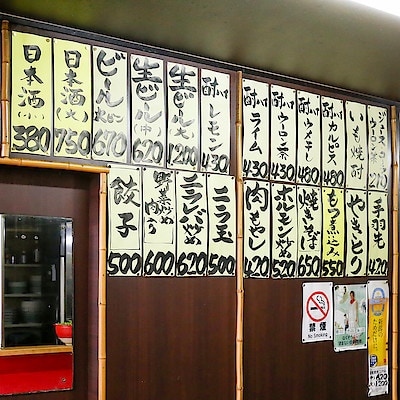 日本酒(小) 380
日本酒(大) 750
ビール 大ビン 670
生ビール(中) 620
生ビール(大) 1200
酎ハイ レモン 430
酎ハイ ライム 430
酎ハイ ウーロン茶 430
酎ハイ ウメシー 480
酎ハイ カルピス 480
いも焼酎
ジュース コーラ ウーロン茶 210
餃子 500
野菜炒め 肉入り 600
ニラレバ炒め 620
ニラ玉 500
肉もやし 420
ホルモン炒め 520
焼きそば 650
もつ煮込み 550
やきとり
手羽も 420
禁煙
No Smoking